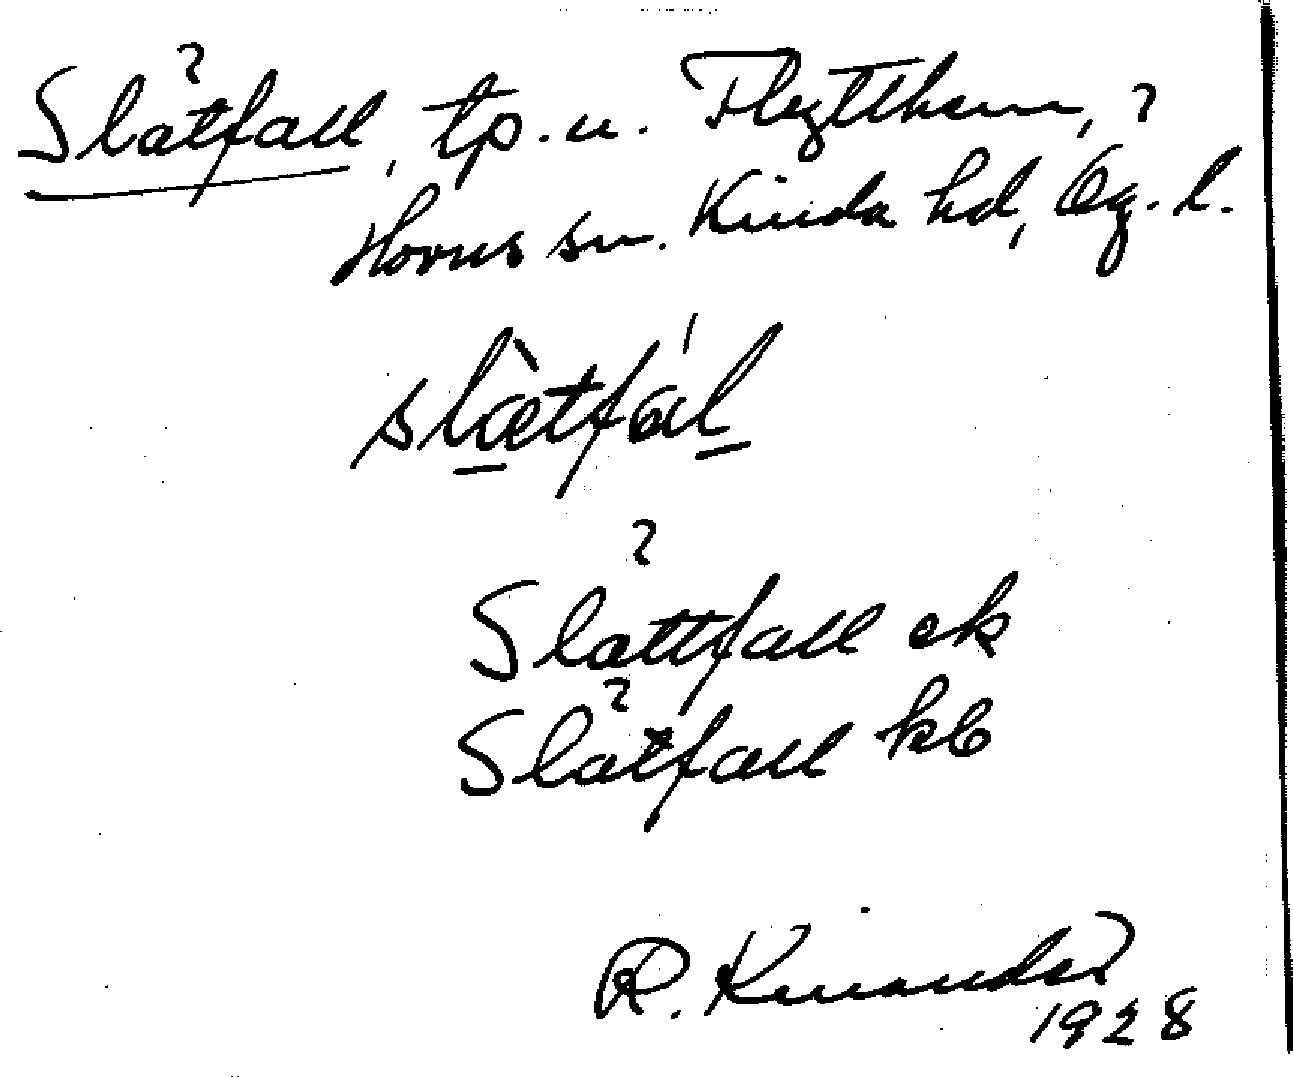 Slåtfall, tp. u. Flytthem, ?
Horns sn. Kinda hd, Ög. l.
slæ̀tfál
Slåttfall ek
Slåtfall kb
R. Kinander
1928